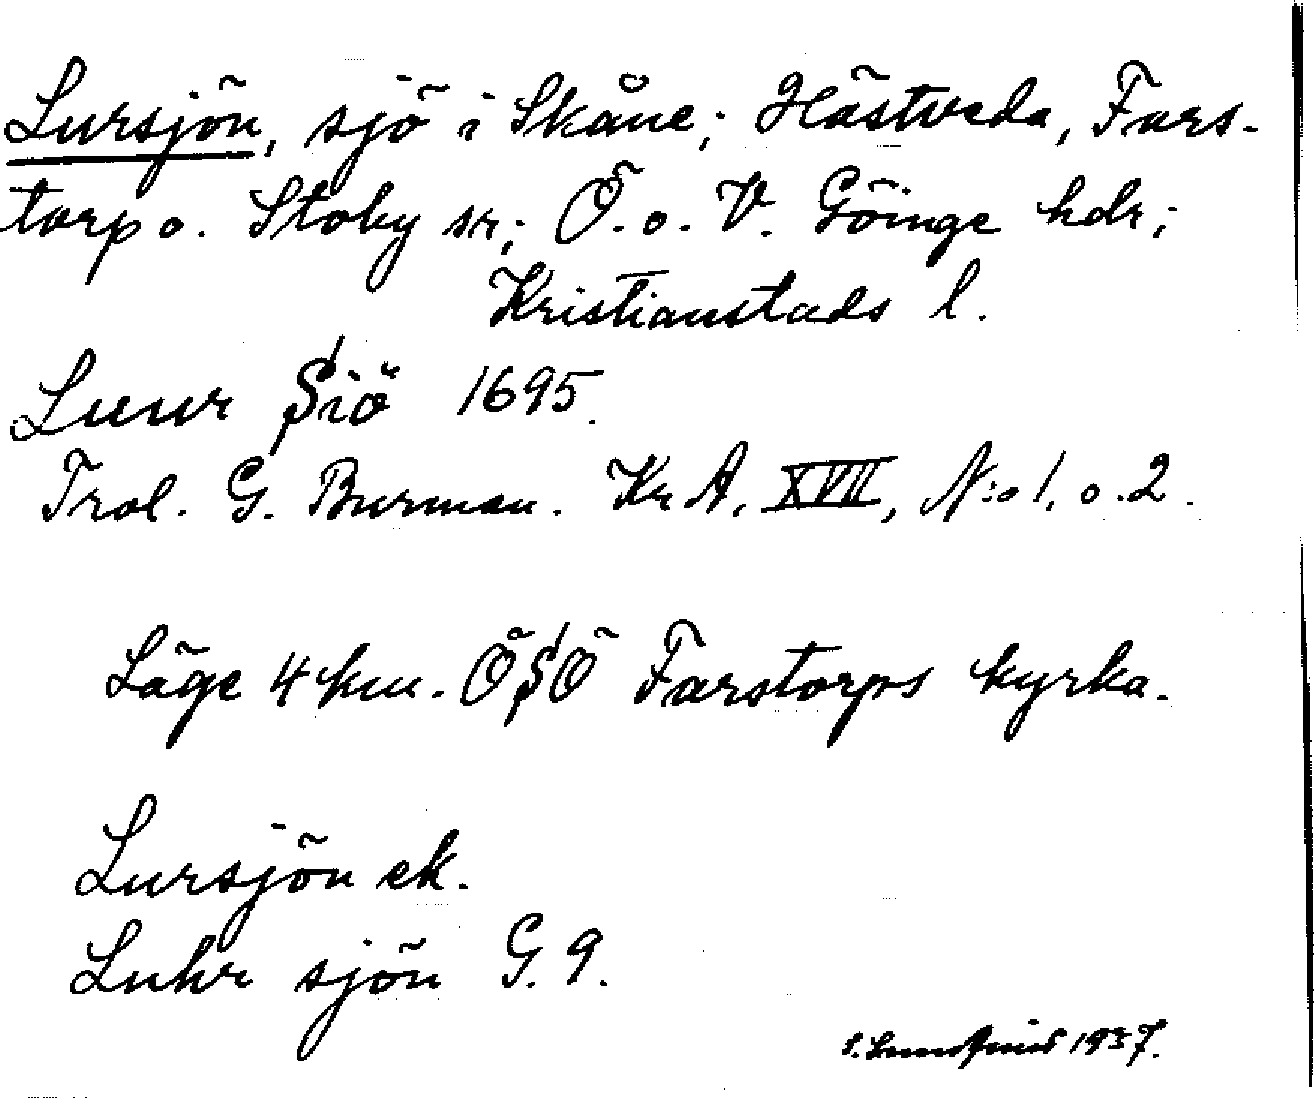 Lursjön, sjö i Skåne; Hästveda, Fars-
torp o. Stoby sr; Ö. o. V. Göinge hdr;
Kristianstads l.
Luur Siö 1695.
Trol. G. Burman. Kr A, XVII, N:o 1, o. 2.
Läge 4 km. ÖSÖ Farstorps kyrka.
Lursjön ek.
Luhr sjön G. 9.
S. Lundquist 1937.